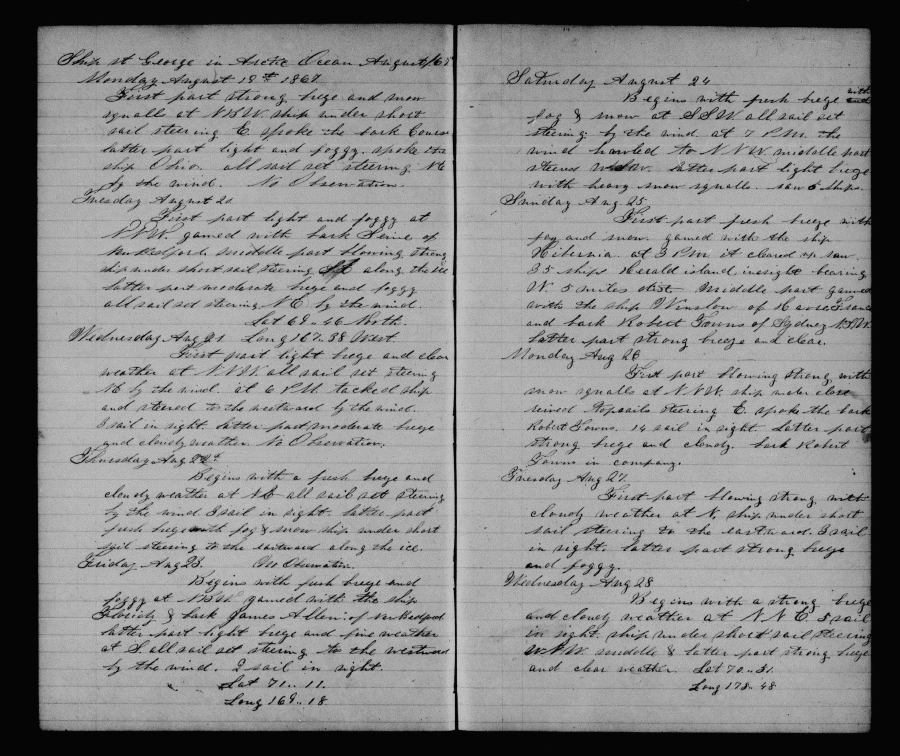 Ship St George in Arctic Ocean August 1867
Monday August 19th 1867
First part strong brege and snow
squalls at NBW. ship under short
sail steering E. spoke the bark
latter part light and foggy. spoke the
ship Ohio. all sail set steering NE
by the wind. No Observation.
Tuesday August 20
First part light and foggy at
NNW. gamed with bark Seine of
New Bedford. middle part blowing strong
ship under short sail steering along the ice
latter part moderate brege and foggy
all sail set steering NE by the wind.
Lat 69..46 North.
Wednesday Aug 21. Long 167..38 West.
First part light brege and clear
weather at NNW. all sail set steering
NE by the wind. at 6 P.M. tacked ship
and steered to the westward by the wind.
sail in sight. latter part moderate brege
and cloudy weather. No Observation.
Thursday Aug 22d
Begins with a fresh brege and
cloudy weather at NE all sail set steering
by the wind. 3 sail in sight. latter part
fresh brege with fog & snow ship under short
sail steering to the eastward along the ice.
Friday Aug 23. No Observation.
Begins with fresh brege and
foggy at NBW. gamed with the ship
Florida & bark James Allen of New Bedford
latter part light brege and fine weather
at S. all sail set steering to the westward
by the wind. 2 sail in sight.
Lat 71..11.
Long 169..18
Saturday August 24
Begins with fresh brege with
fog & snow at SSW all sail set
steering by the wind at 7 P.M. the
wind hauled to NNW. middle part
steered latter part light brege
with heavy snow squalls. saw 6 ships.
Sunday Aug 25.
First part fresh brege with
fog and snow. gamed with the ship
Hibernia. at 3 P.M. it cleared up saw
35 ships Herald island insight bearing
W. 5 miles dist. middle part gamed
with the ship Winslow of Havre France
and bark Robert Towns of Sydney N.S.W.
latter part strong brege and clear.
Monday Aug 26
First part blowing strong with
snow squalls at NNW. ship under close
reived topsails steering E. spoke the bark
Robert Towns. 14 sail in sight latter part
strong brege and cloudy. bark Robert
Towns in company.
Tuesday Aug 27.
First part blowing strong with
cloudy weather at N. ship under short
sail steering to the eastward. 3 sail
in sight. latter part strong brege
and foggy.
Wednesday Aug 28
Begins with a strong brege
and cloudy weather at NNE. 5 sail
in sight. ship under short sail steering
WNW. middle & latter part strong brege
and clear weather. Lat 70..31.
Long 178..48